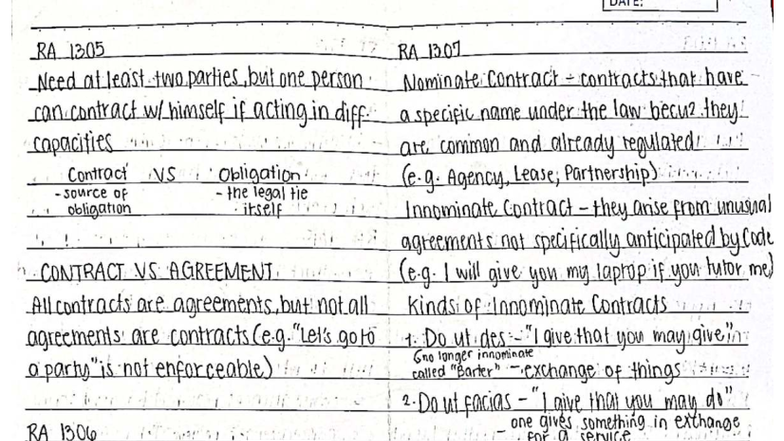 DATE:
RA 1305
Need at least two parties, but one person
can contract w/ himself if acting in diff.
capacities
Contract VS Obligation
- source of obligation
- the legal tie itself
CONTRACT VS AGREEMENT
All contracts are agreements, but not all
agreements are contracts (e.g. "Let's go to
a party" is not enforceable)
RA 1306
RA 1307
Nominate Contract - contracts that have
a specific name under the law becuz they
are common and already regulated
(e.g. Agency, Lease, Partnership)
Innominate Contract - they arise from unusual
agreements not specifically anticipated by Code
(e.g. I will give you my laptop if you tutor me)
Kinds of Innominate Contracts
1. Do ut des - "I give that you may give"
no longer innominate
called "Barter" - exchange of things
2. Do ut facias - "I give that you may do"
- one gives something in exchange
for a service